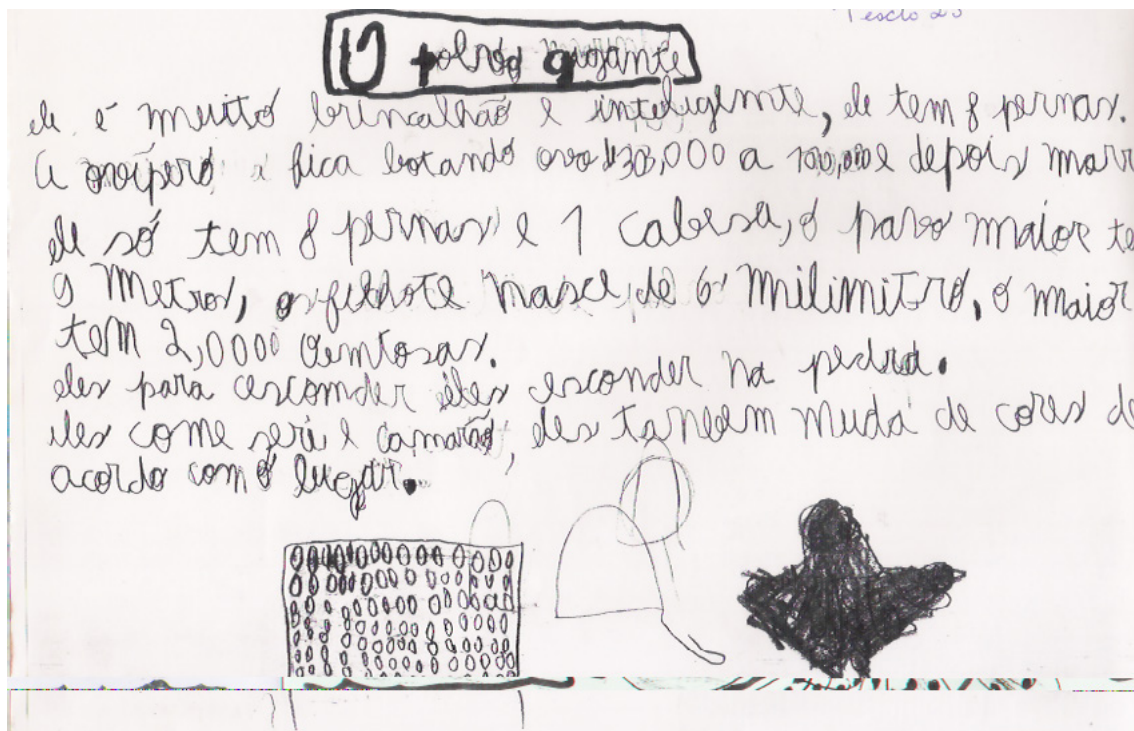 Texto 23
O polvo gigante
ele é muito brincalhão e inteligemte, ele tem 8 pernas.
a ovíperó fica botando ovo 30,000 a 100,000 e depois morr
ele só tem 8 pernas e 1 cabesa, o povo maior te
9 Metros, o filhote nasce de 6 milimitro, o maior
tem 2,0000 Ventosas.
eles para esconder eles esconder na pedra.
eles come seri e camarão, eles tanbem muda de cores de
acordo com o lugar.